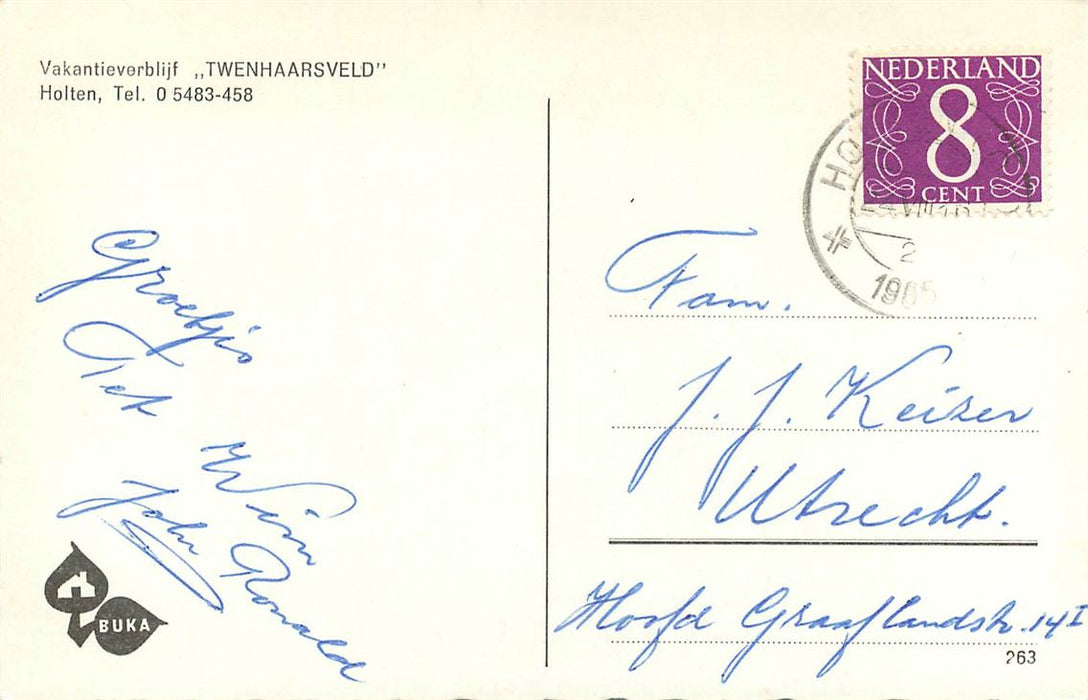 Vakantieverblijf „TWENHAARSVELD”
Holten, Tel. 0 5483-458
NEDERLAND
8
CENT
HO
2
1965
Groetjes
Wim
John
Ronald
BUKA
Fam.
J. J. Keizer
Utrecht.
Hoofd Graaflandstr. 14 I
263